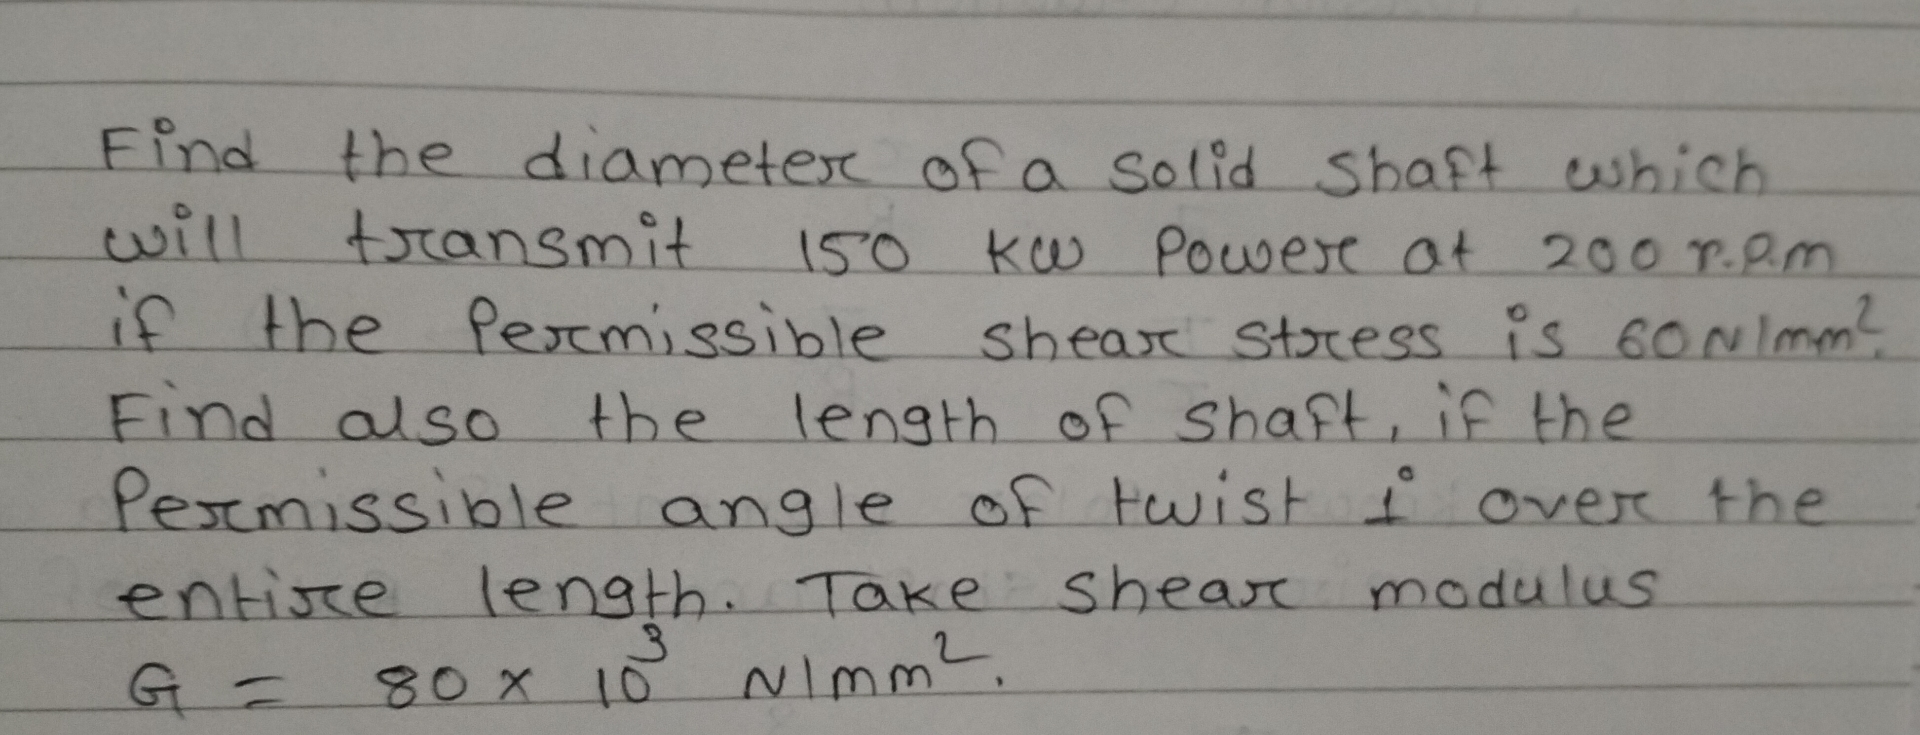 Find the diameter of a solid shaft which
will transmit 150 kw Power at 200 r.p.m
if the Permissible shear stress is 60 N/mm².
Find also the length of shaft, if the
Permissible angle of twist 1° over the
entire length. Take shear modulus
G = 80 × 10³ N/mm².